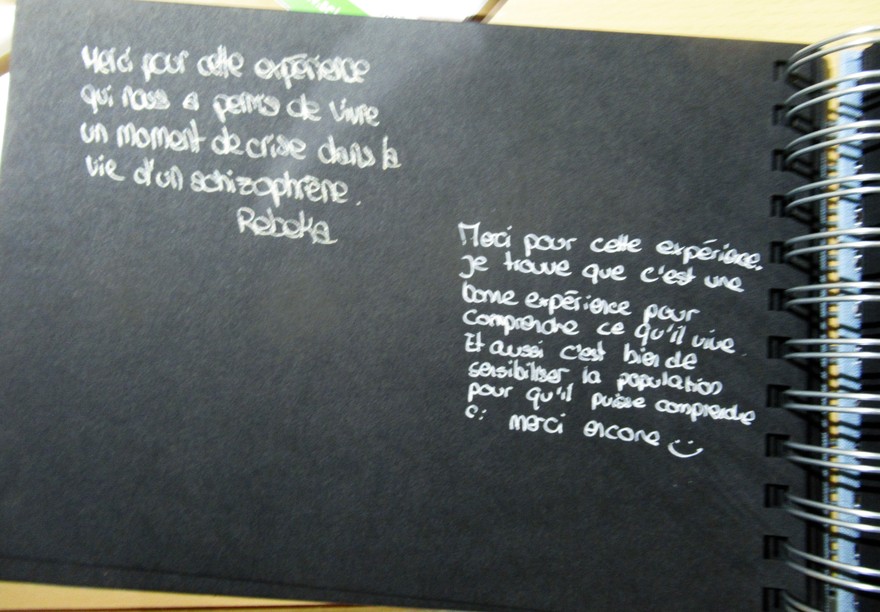 Merci pour cette expérience
qui nous a permis de vivre
un moment de crise dans la
vie d'un schizophrène.
Rebeka
Merci pour cette expérience.
je trouve que c'est une
bonne expérience pour
comprendre ce qu'il vive.
Et aussi c'est bien de
sensibiliser la population
pour qu'il puisse comprendre
c: merci encore :)